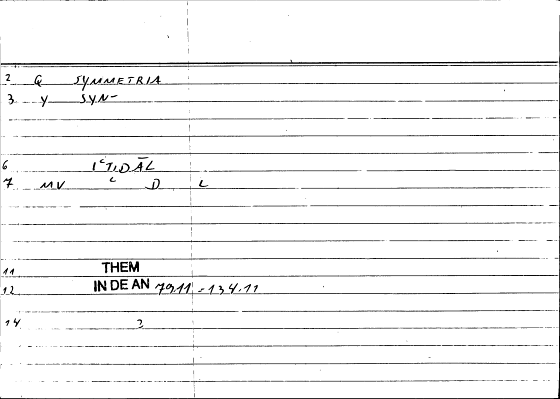 2 G SYMMETRIA
3 Y SYN-
6 IʿTIDĀL
7 MV ʿ D L
11 THEM
12 IN DE AN 79,11 = 134.11
14 3